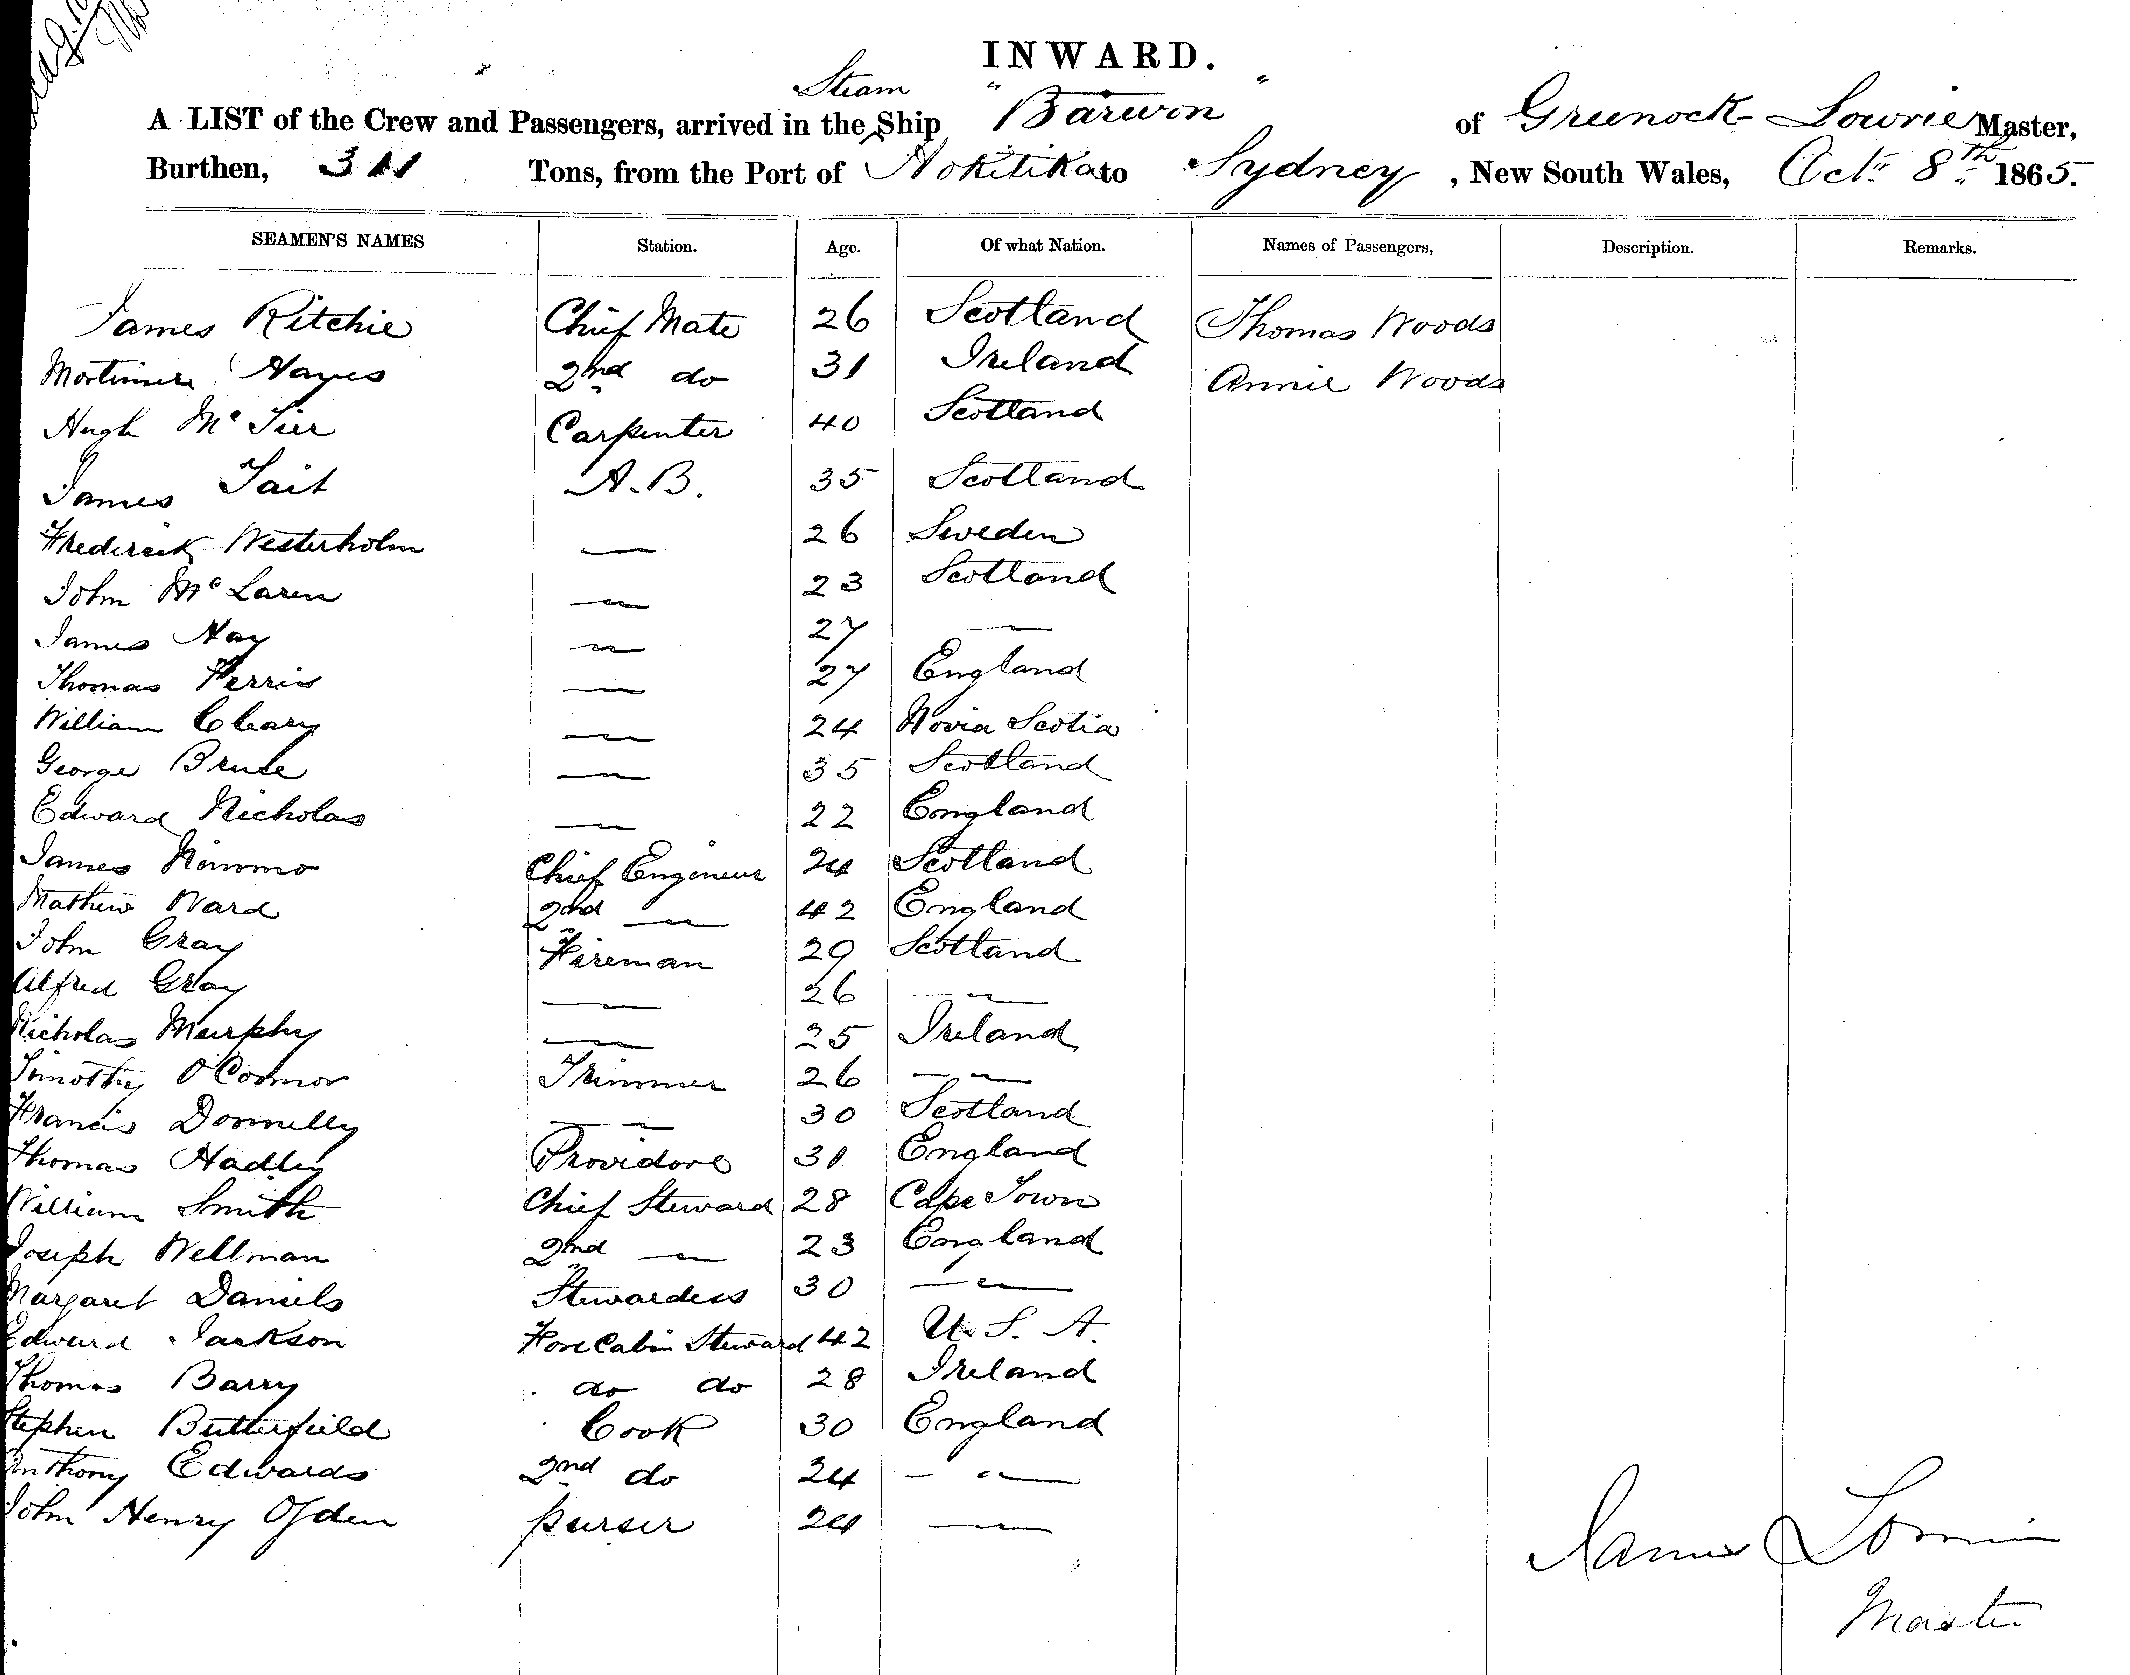 INWARD.
Steam
A LIST of the Crew and Passengers, arrived in the Ship "Barwon" of Greenock Lowrie Master,
Burthen, 311 Tons, from the Port of Hokitika to Sydney, New South Wales, Oct. 8th 1865.
SEAMEN'S NAMES Station. Age. Of what Nation. Names of Passengers, Description. Remarks.
James Ritchie Chief Mate 26 Scotland Thomas Woods
Mortimer Hayes 2nd do 31 Ireland Annie Woods
Hugh McTier Carpenter 40 Scotland
James Tait A.B. 35 Scotland
Frederick Westerholm — 26 Sweden
John McLaren — 23 Scotland
James Hay — 27 —
Thomas Ferris — 27 England
William Cleary — 24 Novia Scotia
George Bruce — 35 Scotland
Edward Nicholas — 22 England
James Nimmo Chief Engineer 24 Scotland
Mathew Ward 2nd — 42 England
John Gray Fireman 29 Scotland
Alfred Gray — 26 —
Nicholas Murphy — 25 Ireland
Timothy O'Connor Trimmer 26 —
Francis Donnelly — 30 Scotland
Thomas Hadley Providore 31 England
William Smith Chief Steward 28 Cape Town
Joseph Wellman 2nd — 23 England
Margaret Daniels Stewardess 30 —
Edward Jackson Fore Cabin Steward 42 U.S.A.
Thomas Barry do do 28 Ireland
Stephen Butterfield Cook 30 England
Anthony Edwards 2nd do 24 —
John Henry Ogden purser 24 —
James Lowrie
Master